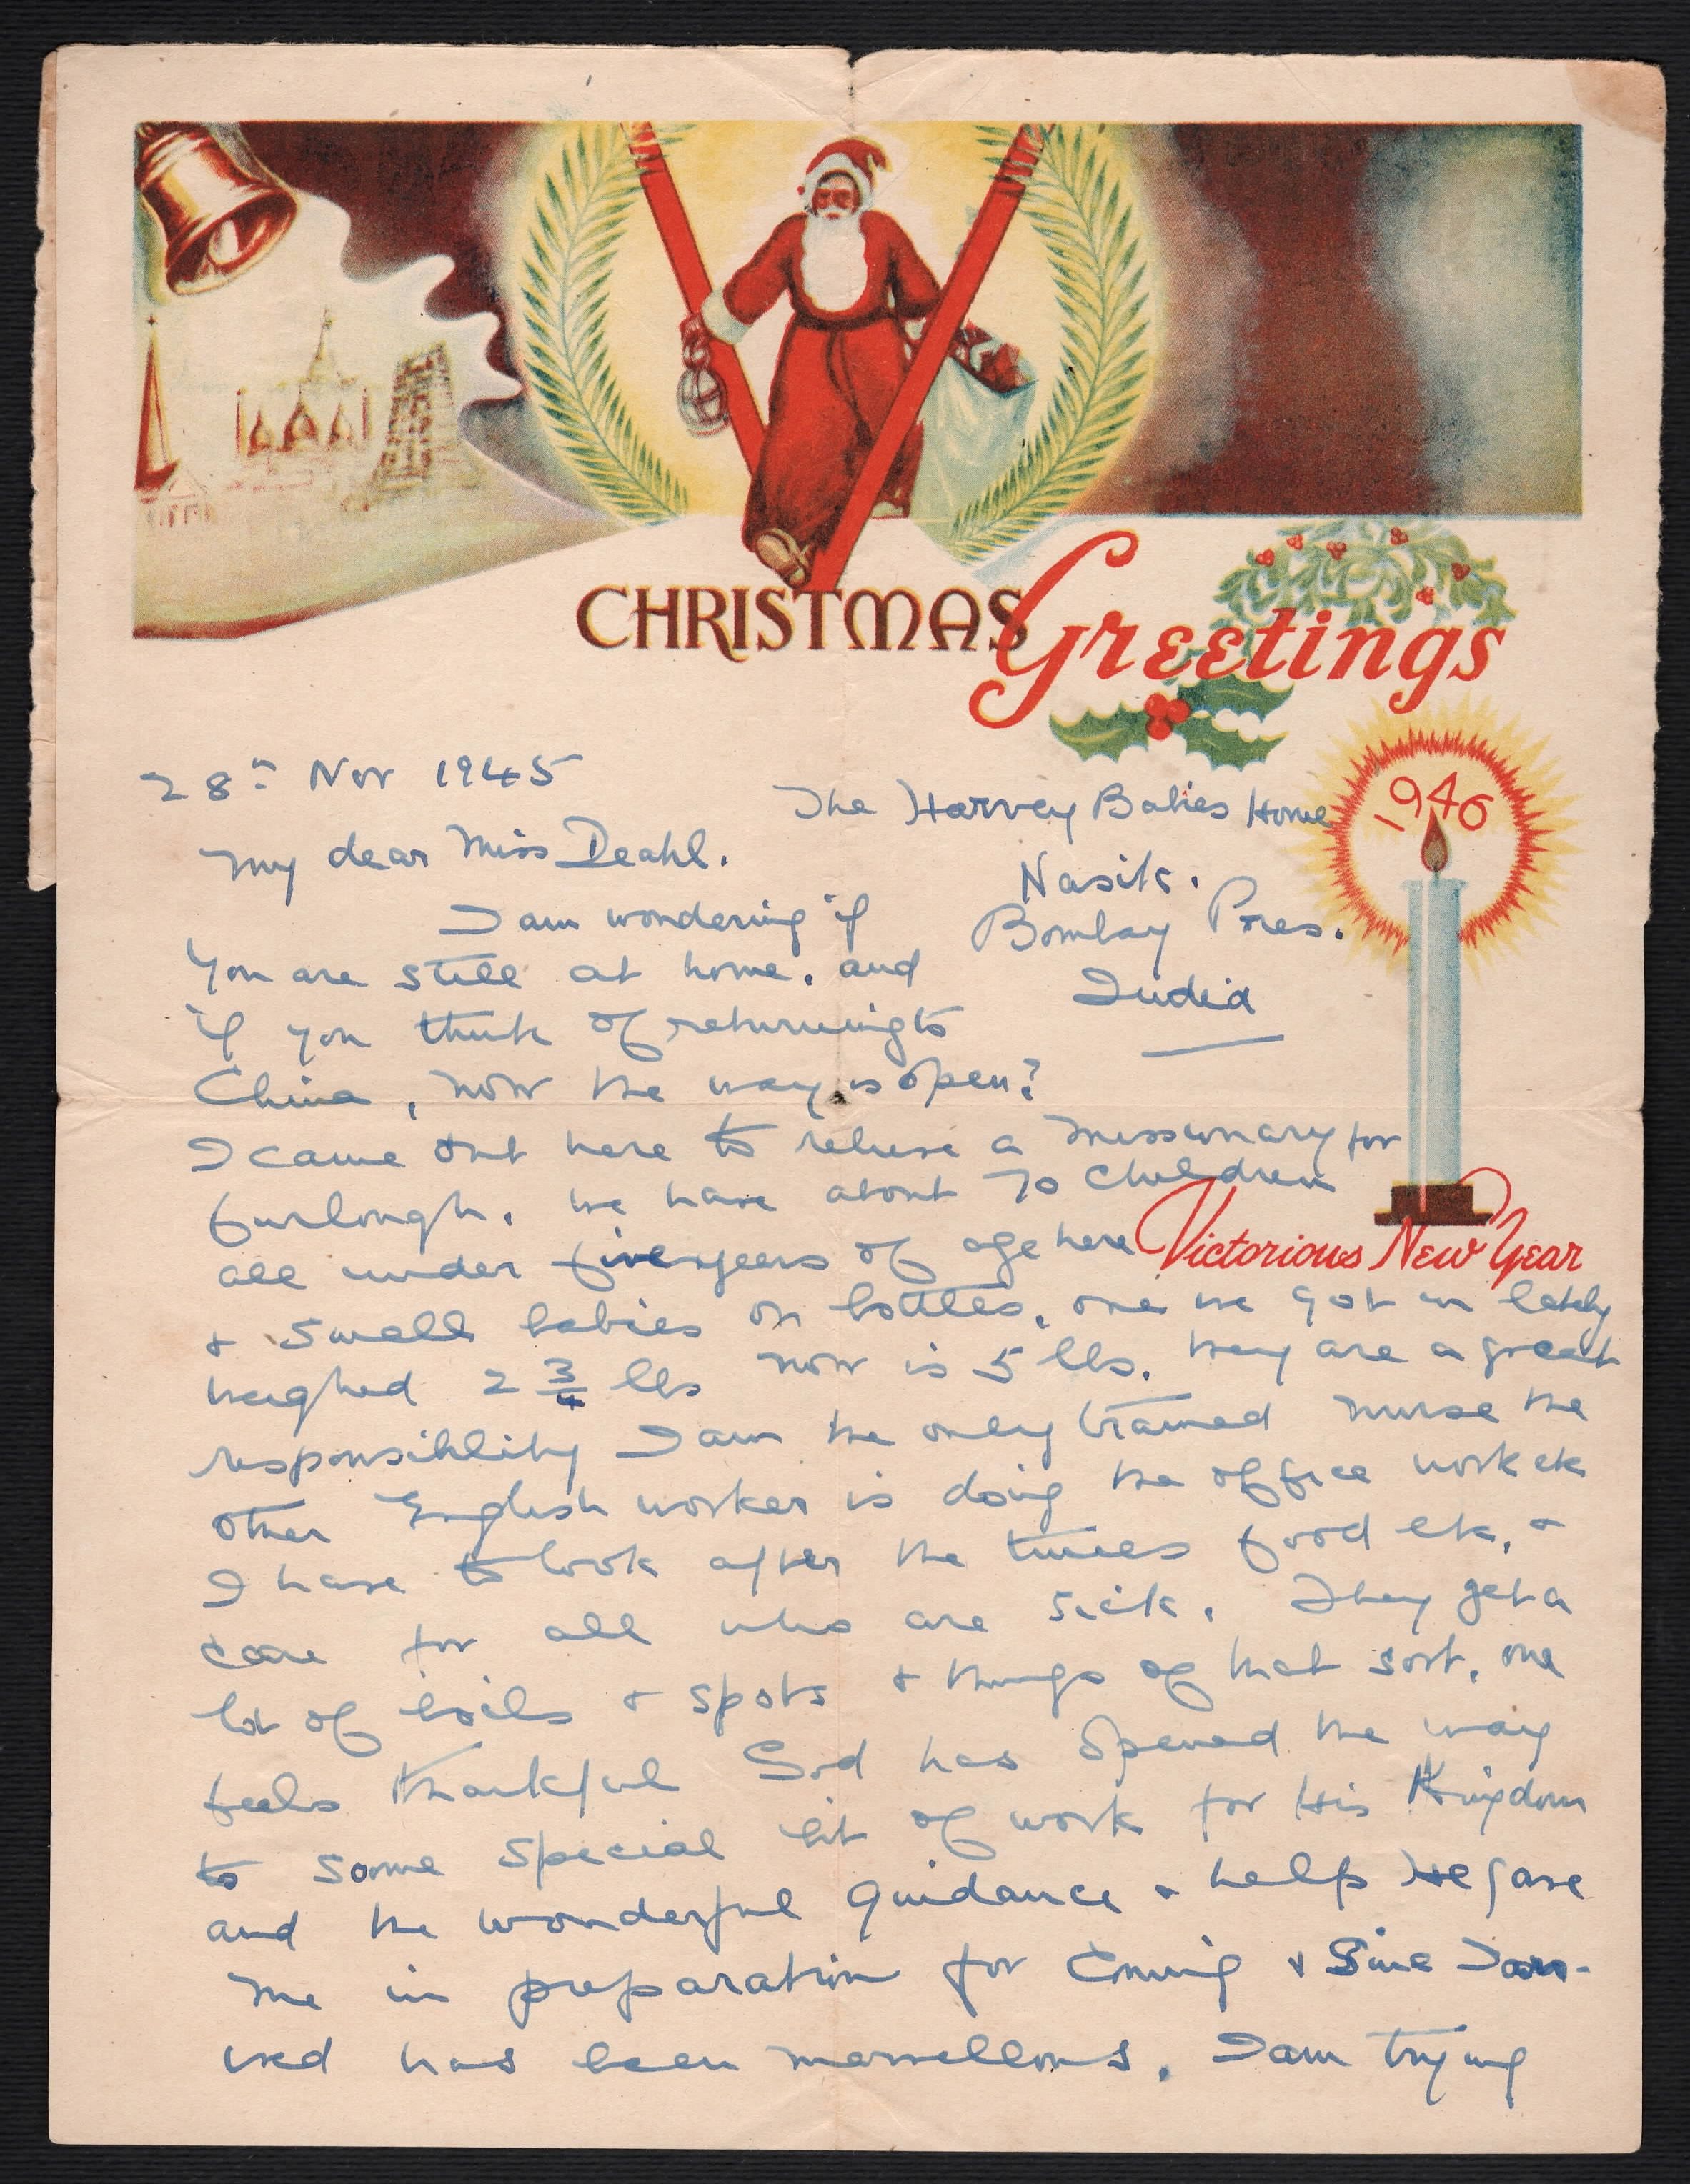 CHRISTMAS Greetings
1946
Victorious New Year
28th Nov 1945
The Harvey Babies Home
Nasik.
Bombay Pres.
India
My dear Miss Deahl.
I am wondering if
you are still at home. and
if you think of returning to
China, now the way is open?
I came out here to relieve a missionary for
furlough. we have about 70 children
all under five years of age here
+ small babies on bottles. one we got in lately
weighed 2 3/4 lbs now is 5 lbs. they are a great
responsiblity I am the only trained nurse the
other English worker is doing the office work etc
I have to look after the food etc, +
care for all who are sick. They get a
lot of boils + spots + things of that sort. one
feels thankful God has opened the way
to some special bit of work for His Kingdom
and the wonderful guidance + help He gave
me in preparation for coming + Sine I arr-
ived has been marvellous. I am trying